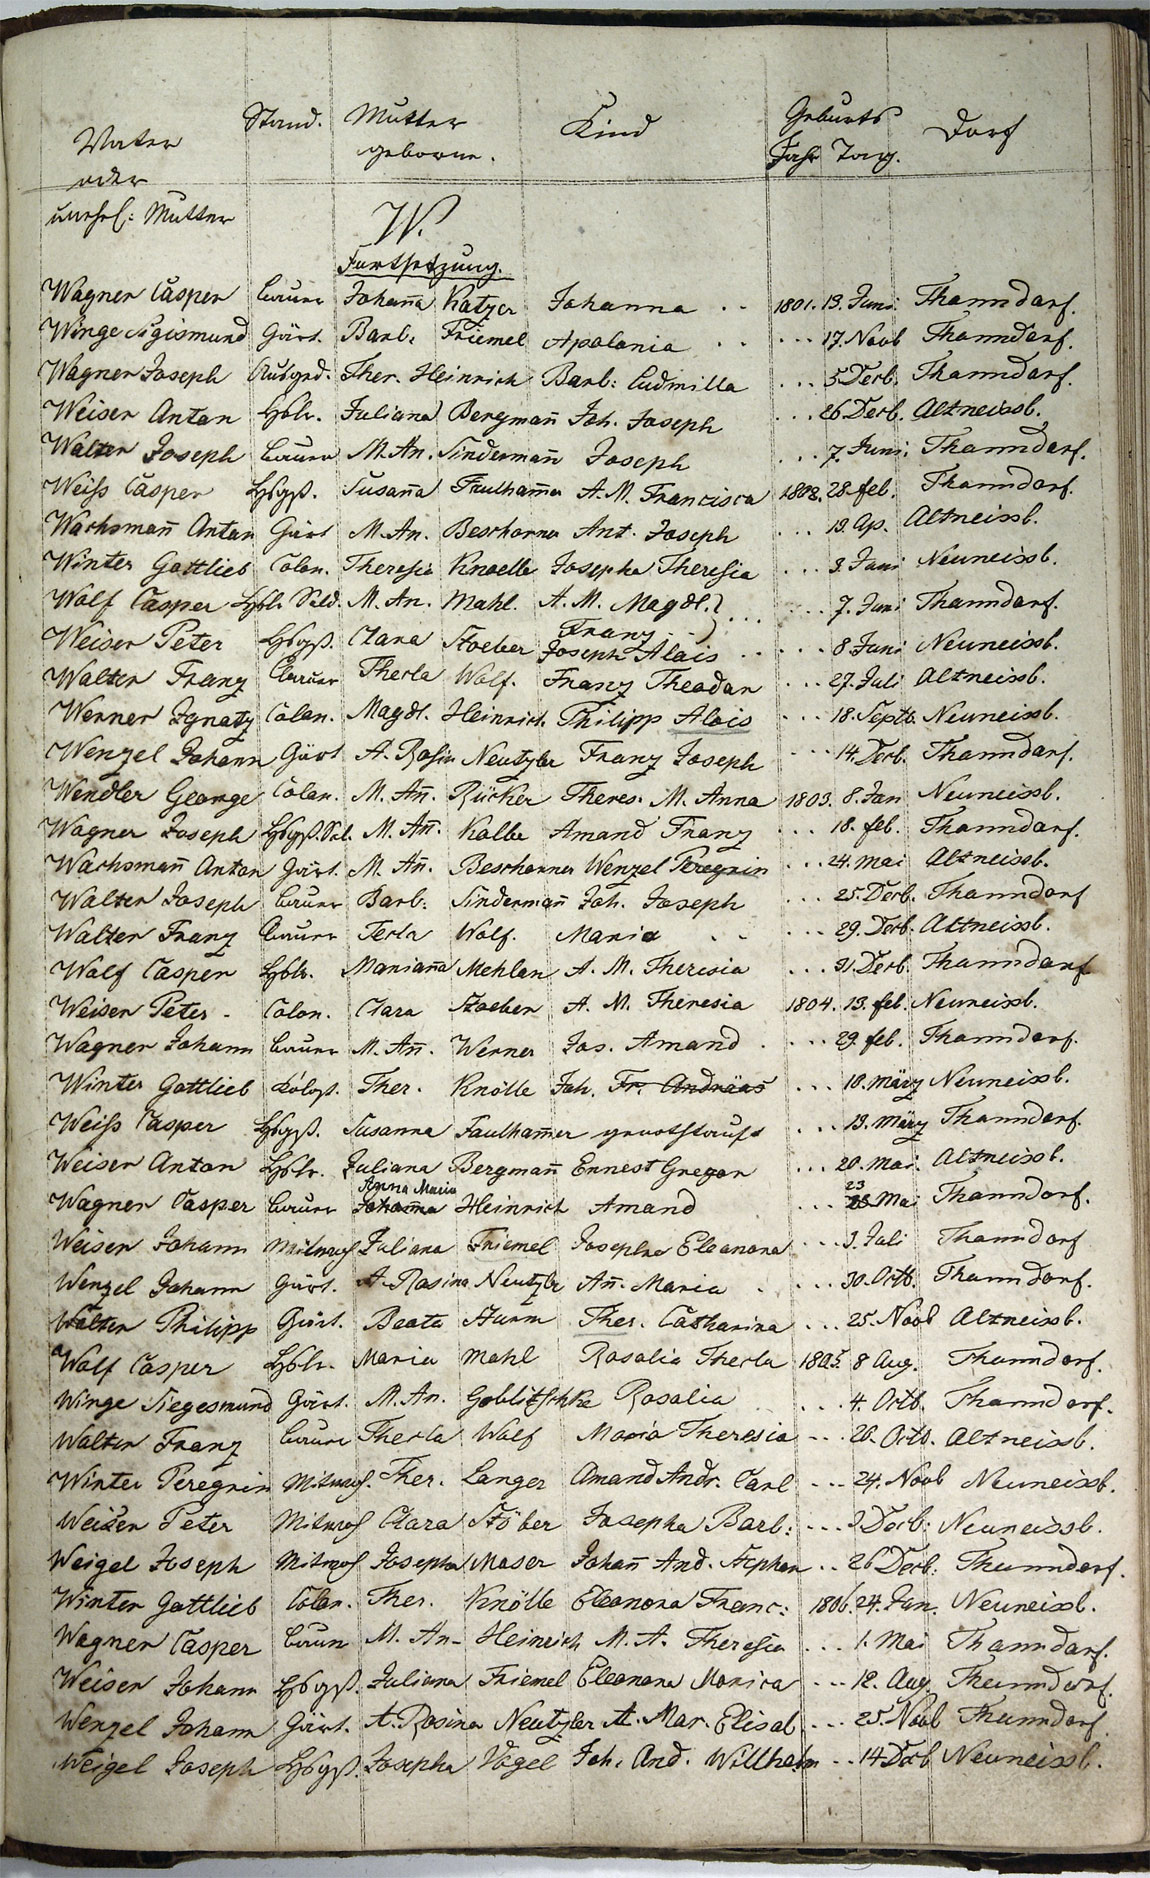 Vater Stand. Mutter Kind Geburts Dorf
oder geborne. Jahr Tag.
unehel: Mutter
W.
Fortsetzung.
Wagner Casper Bauer Johan̄a Katzer Johanna 1801. 13. Juni Thanndorf.
Winge Sigismund Gärt. Barb: Friemel Apolonia 17. Novb Thanndorf.
Wagner Joseph Ausged. Ther. Heinrich Barb: Ludmilla 5 Decb. Thanndorf.
Weiser Anton Hslr. Juliana Bergman̄ Joh. Joseph 26 Decb. Altneissb.
Walter Joseph Bauer M. An. Sinderman̄ Joseph 7. Juni Thanndorf.
Weiss Casper Hsgß. Susan̄a Faulham̄er A. M. Francisca 28. feb. Thanndorf.
Wachsman̄ Anton Gärt M. An. Beschorner Ant. Joseph 19. Ap. Altneissb.
Winter Gottlieb Colon. Theresia Knoelle Josepha Theresia 3. Juni Neuneissb.
Wolf Casper Hslr Sold. M. An. Mahl. A. M. Magdl. 7. Juni Thanndorf.
Franz
Weiser Peter Hsgß. Clara Stoeber Joseph Alois 8 Juni Neuneissb.
Walter Franz Bauer Thecla Wolf. Franz Theodor 27. Juli Altneissb.
Werner Ignatz Colon. Magdl. Heinrich Philipp Alois 18. Septb. Neuneissb.
Wenzel Johann Gärt A. Rosin Neutzler Franz Joseph 14. Decb. Thanndorf.
Wendler George Colon. M. An̄. Rücker Theres. M. Anna 1803. 8. Jan Neuneissb.
Wagner Joseph Hsgß. Sol. M. An̄. Kolbe Amand Franz 18. feb. Thanndorf.
Wachsman̄ Anton Gärt. M. An̄. Beschorner Wenzel Peregrin 24. Mai Altneissb.
Walter Joseph Bauer Barb: Sinderman̄ Joh. Joseph 25. Decb. Thanndorf
Walter Franz Bauer Tecla Wolf. Maria 29. Decb. Altneissb.
Wolf Casper Hslr. Marian̄a Mehlan A. M. Theresia 31 Decb. Thanndorf
Weiser Peter Colon. Clara Stoeber A. M. Theresia 1804. 13. feb. Neuneissb.
Wagner Johann Bauer M. An̄. Werner Jos. Amand 29. feb. Thanndorf.
Winter Gottlieb Ther. Knölle Joh. Fr. Andräas 18. März Neuneissb.
Weiss Casper Hsgß. Susanna Faulham̄er genothtauft 19. März Thanndorf.
Weiser Anton Hslr. Juliana Bergman̄ Ernest Gregor 20. Mai. Altneissb.
Anna Maria 23
Wagner Casper Bauer Johan̄a Heinrich Amand Mai Thanndorf.
Weiser Johann Juliana Friemel Josepha Eleonora 3. Juli Thanndorf
Wenzel Johann Gärt. A. Rosina Neutzler An̄. Maria 30. Octb. Thanndorf.
Walter Philipp Gärt. Beata Sturm Ther. Catharina 25. Novb Altneissb.
Wolf Casper Hslr. Maria Mahl Rosalia Thecla 1805. 8 Aug. Thanndorf.
Winge Siegesmund Gärt. M. An. Goblitschke Rosalia 4. Octb. Thanndorf.
Walter Franz Bauer Thecla Wolf Maria Theresia 20. Octb. Altneissb.
Winter Peregrin Ther. Langer Amand Andr. Carl 24. Novb Neuneissb.
Weiser Peter Clara Stöber Josepha Barb: 3 Decb: Neuneissb.
Weigel Joseph Josepha Moser Johan̄ And. Stephan 26 Decb: Thanndorf.
Winter Gottlieb Colon. Ther. Knölle Eleonora Franc: 1806. 24. Jan. Neuneissb.
Wagner Casper Bauer M. An. Heinrich M. A. Theresia 1. Mai Thanndorf.
Weiser Johann Hsgß. Juliana Friemel Eleonora Monica 12. Aug Thanndorf.
Wenzel Johann Gärt. A. Rosina Neutzler A. Mar. Elisab. 25. Novb Thanndorf.
Weigel Joseph Hsgß. Josepha Vogel Joh. And. Willhelm 14 Decb Neuneissb.